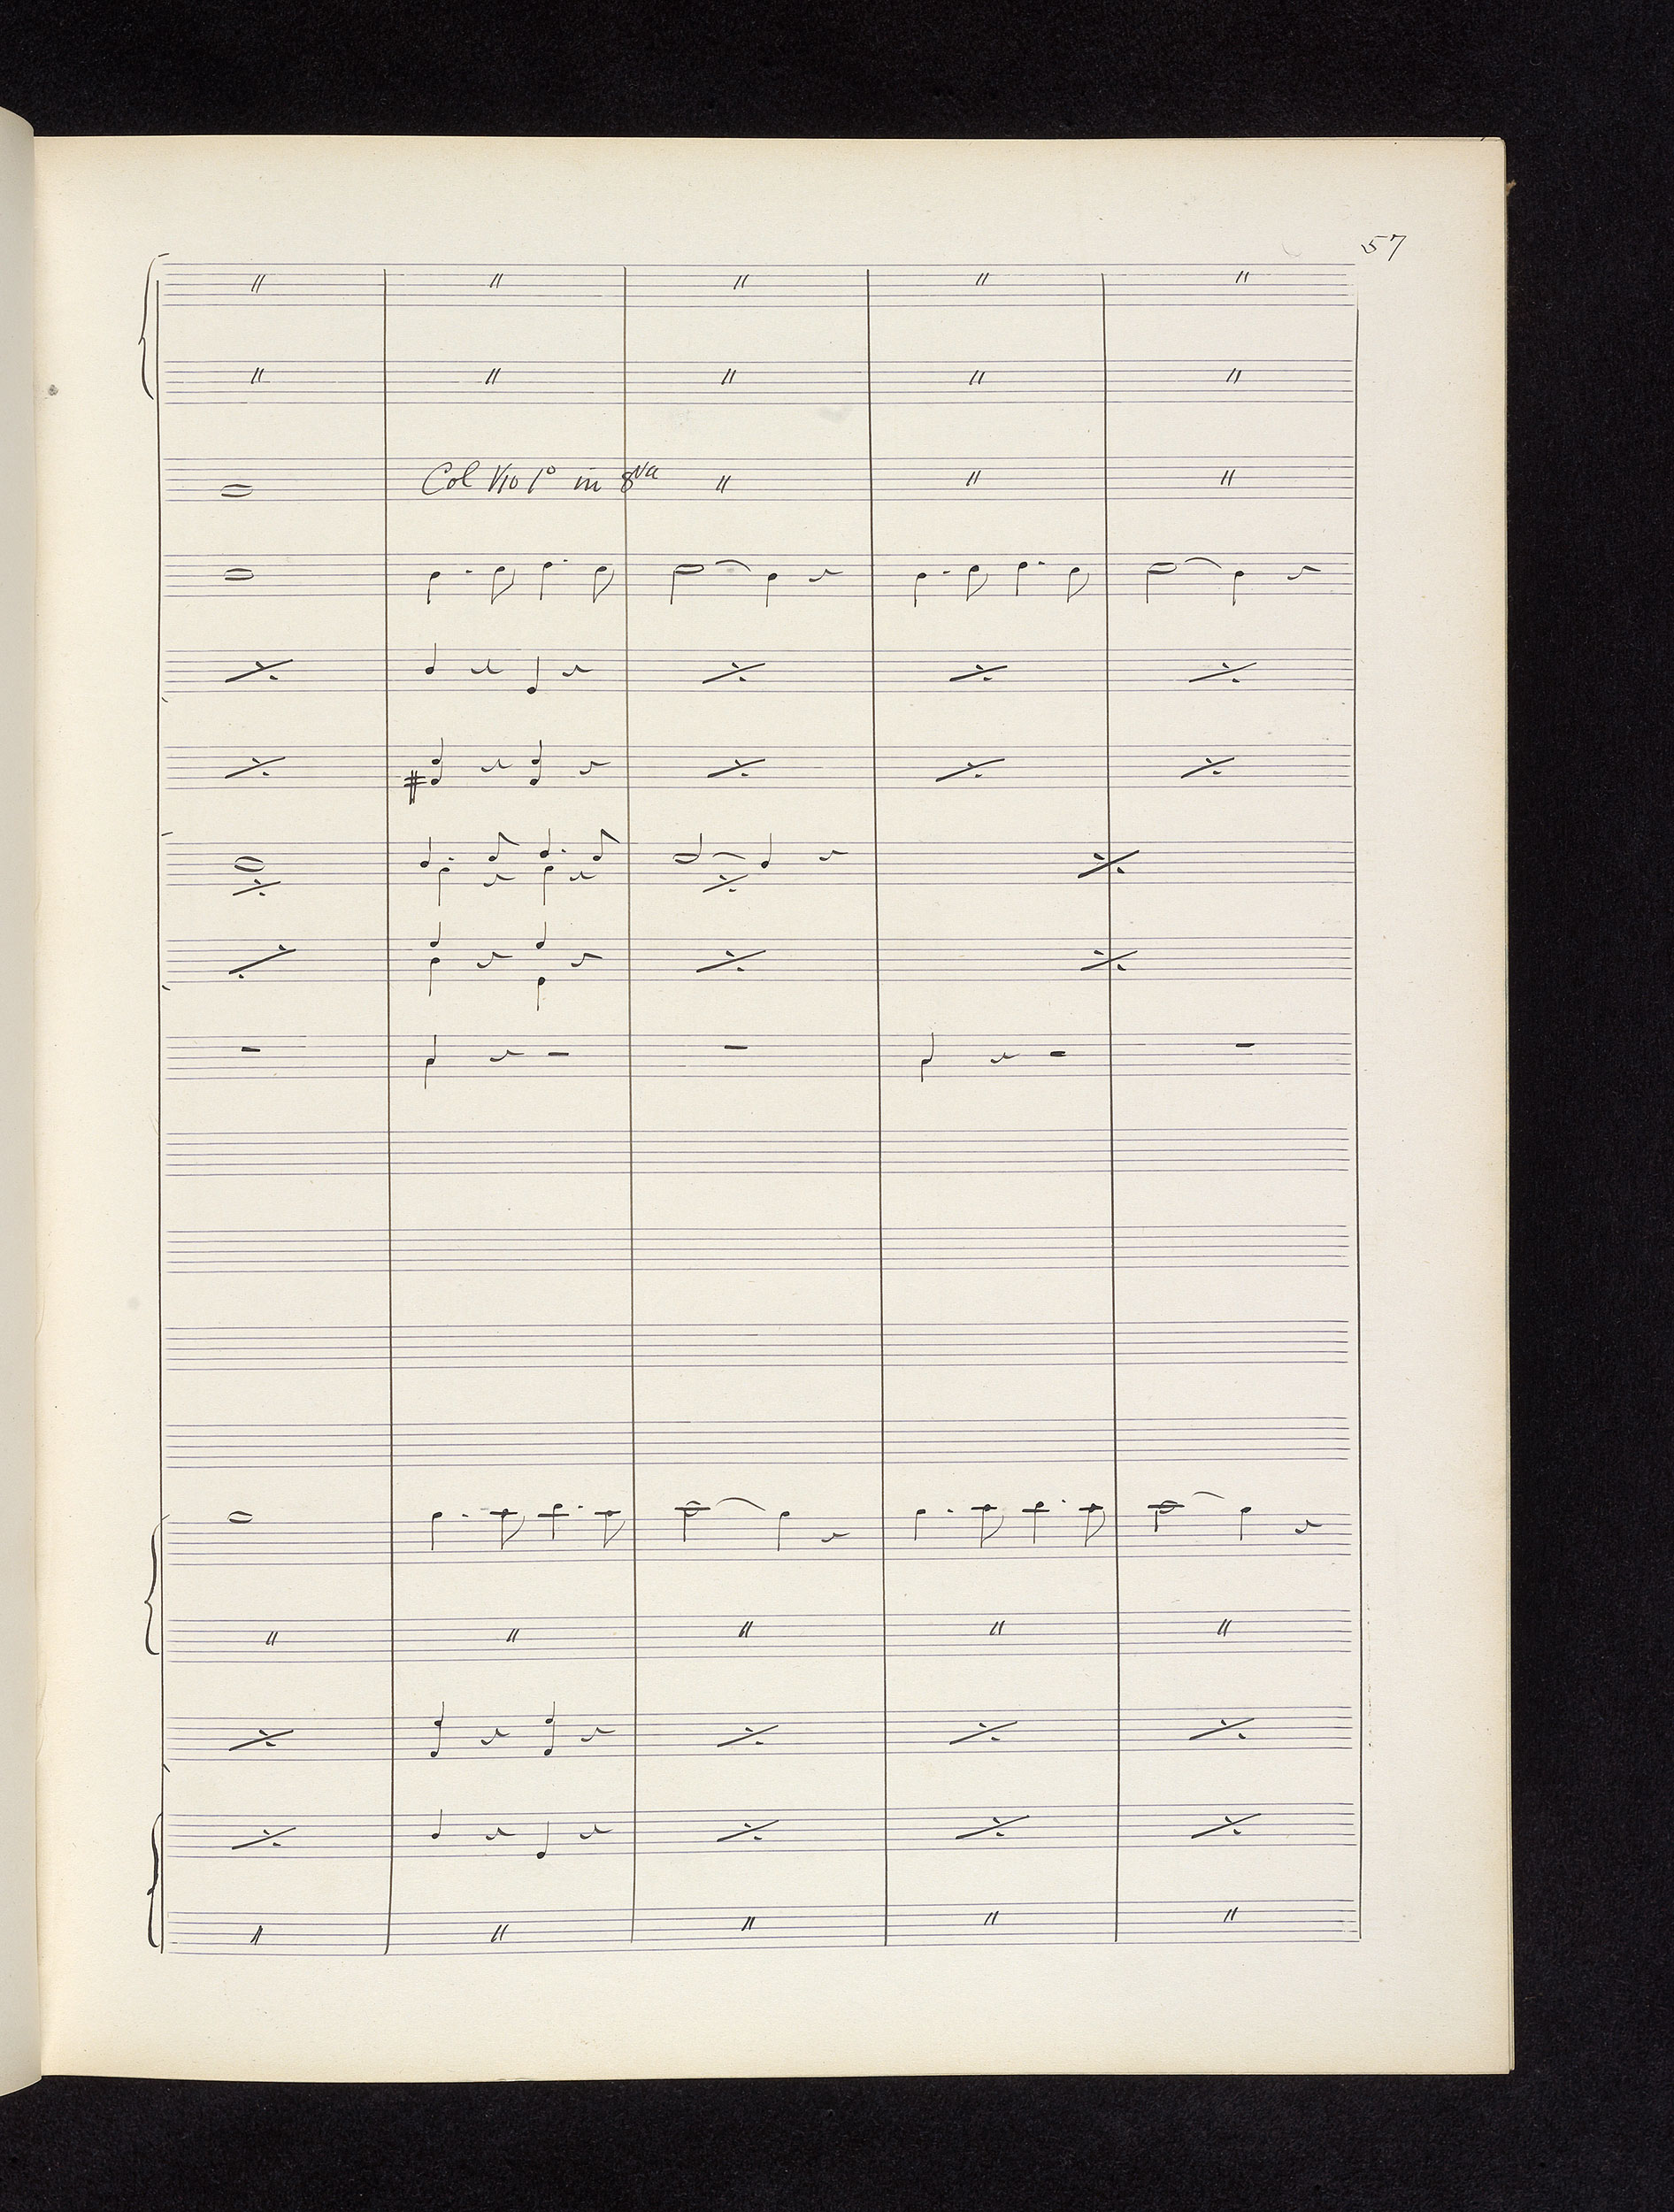 57
Col Vio 1º in 8va